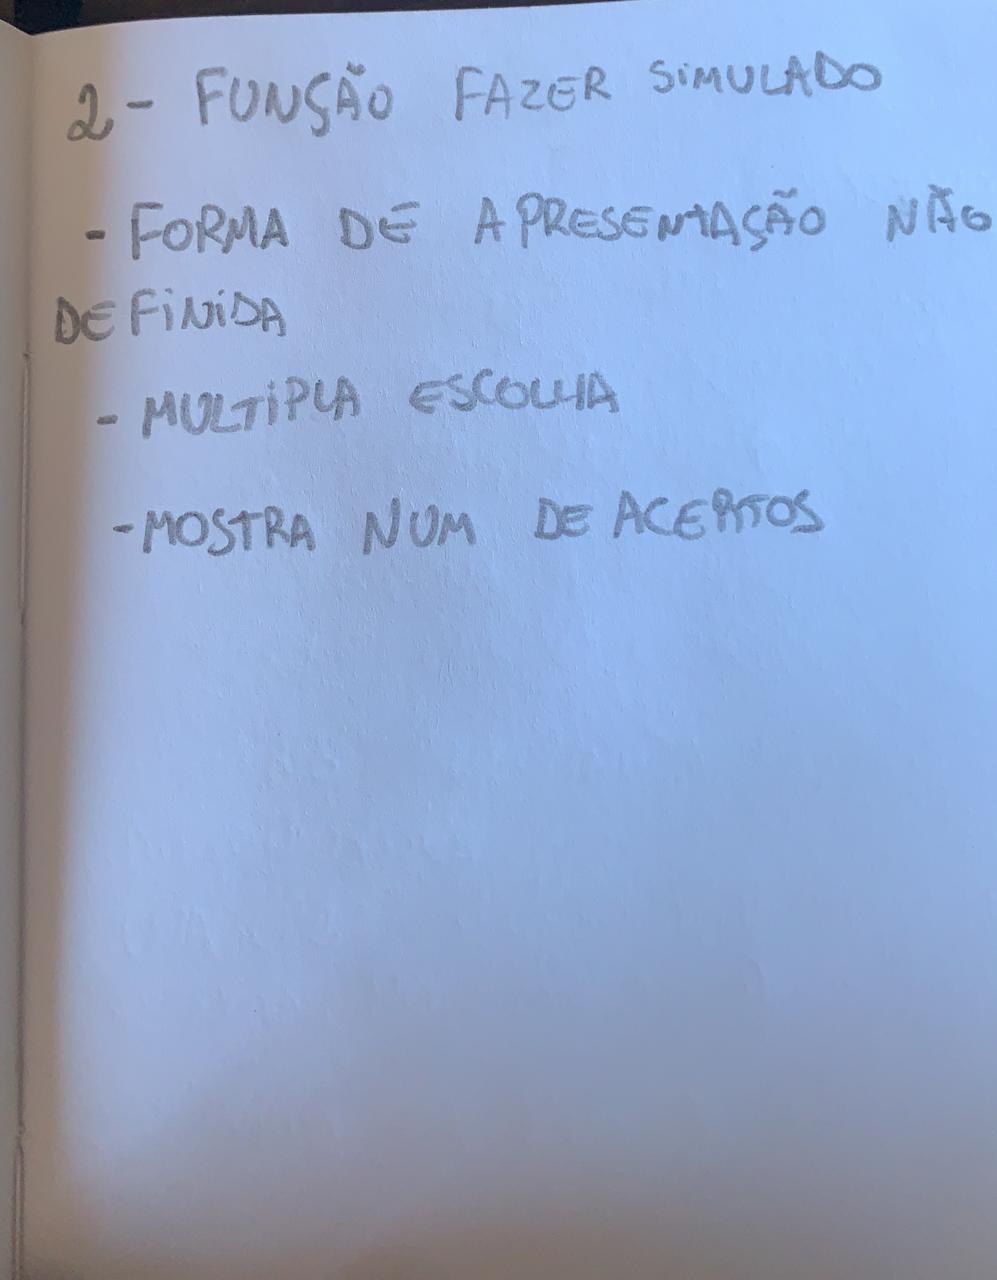 2- FUNÇÃO FAZER SIMULADO
- FORMA DE APRESENTAÇÃO NÃO
DEFINIDA
- MULTIPLA ESCOLHA
- MOSTRA NUM DE ACERTOS